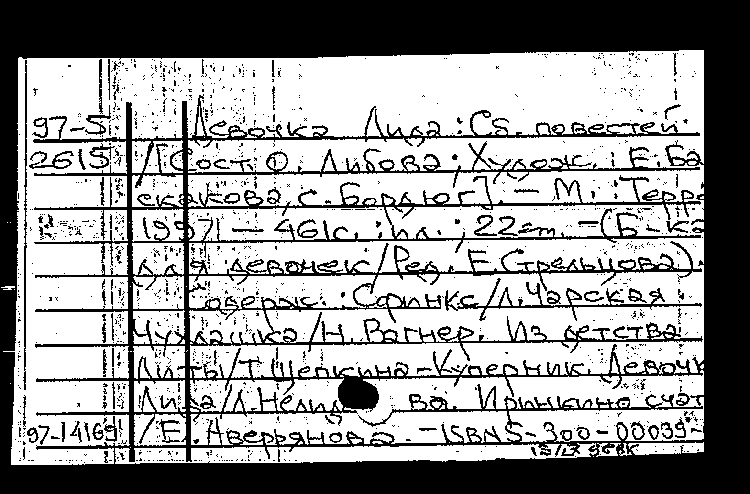 97-5 Девочка Лида : Сб. повестей
2615 /[Сост. О. Либова ; Худож. : Е. Ба
скакова, С. Бордюг]. — М. : Терра
1997 — 461с. : ил. ; 22 см. — (Б-ка
для девочек/Ред. Е. Стрельцова).
Содерж. : Сфинкс/Л. Чарская.
Чухлашка/Н. Вагнер. Из детства
Литы/Т. Щепкина-Куперник. Девочк
Лида/Л. Нелидова. Иринкино счаст
97-14169 /Е. Аверьянова. — ISBN 5-300-00039-